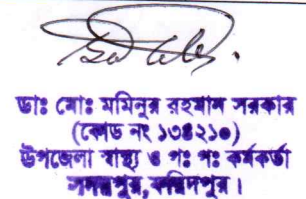 ডাঃ মোঃ মমিনুর রহমান সরকার
(কোড নং ১৩৪২১০)
উপজেলা স্বাস্থ্য ও পঃ পঃ কর্মকর্তা
সদরপুর,ফরিদপুর।